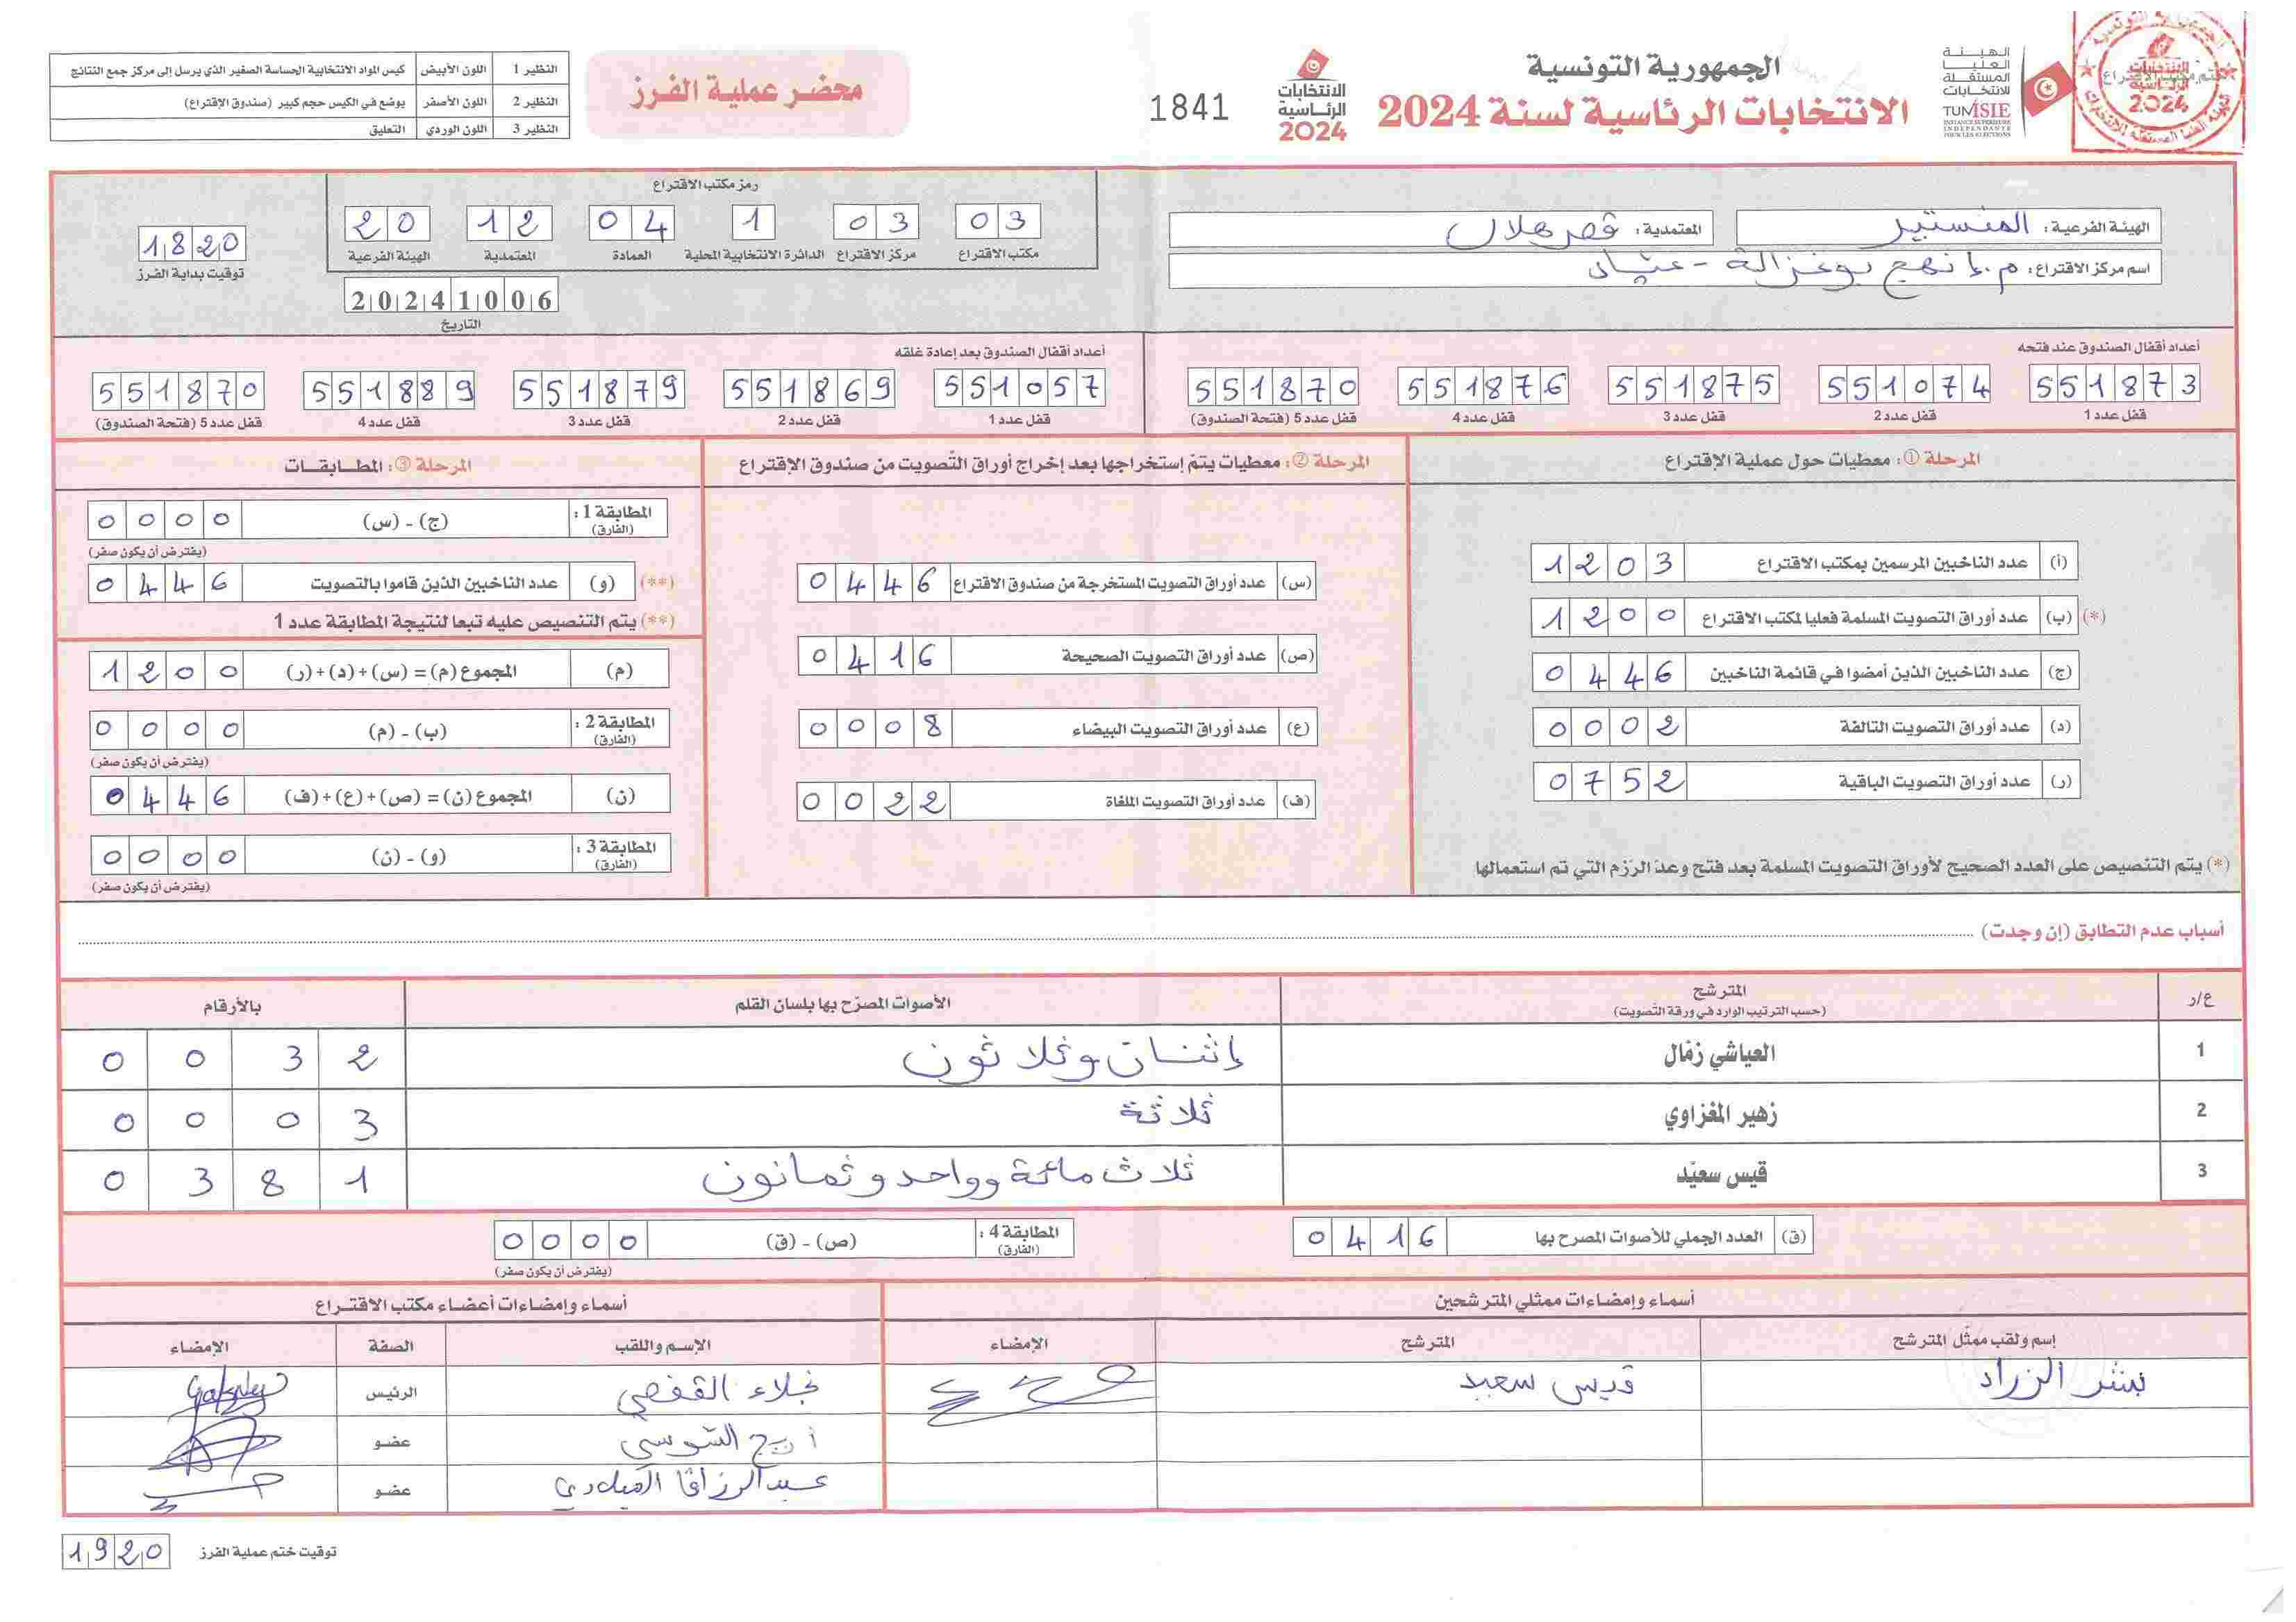 الجمهورية التونسية
الانتخابات الرئاسية لسنة 2024
الهيئة العليا المستقلة للانتخابات
TUNISIE
INSTANCE SUPERIEURE INDEPENDANTE POUR LES ELECTIONS
الانتخابات الرئاسية 2024
1841
محضر عملية الفرز
النظير 1 اللون الأبيض كيس المواد الانتخابية الحساسة الصغير الذي يرسل إلى مركز جمع النتائج
النظير 2 اللون الأصفر يوضع في الكيس حجم كبير (صندوق الإقتراع)
النظير 3 اللون الوردي التعليق
الهيئة الفرعية: المنستير المعتمدية: قصر هلال
اسم مركز الاقتراع: م.إ نهج بوغزالة -
رمز مكتب الاقتراع
03 03 1 04 12 20
مكتب الاقتراع مركز الاقتراع الدائرة الانتخابية المحلية العمادة المعتمدية الهيئة الفرعية
20241006
التاريخ
1820
توقيت بداية الفرز
أعداد أقفال الصندوق عند فتحه
551873 551074 551875 551876 551870
قفل عدد 1 قفل عدد 2 قفل عدد 3 قفل عدد 4 قفل عدد 5 (فتحة الصندوق)
أعداد أقفال الصندوق بعد إعادة غلقه
551057 551869 551879 551889 551870
قفل عدد 1 قفل عدد 2 قفل عدد 3 قفل عدد 4 قفل عدد 5 (فتحة الصندوق)
المرحلة ①: معطيات حول عملية الإقتراع
(أ) عدد الناخبين المرسمين بمكتب الاقتراع 1203
(*) (ب) عدد أوراق التصويت المسلمة فعليا لمكتب الاقتراع 1200
(ج) عدد الناخبين الذين أمضوا في قائمة الناخبين 0446
(د) عدد أوراق التصويت التالفة 0002
(ر) عدد أوراق التصويت الباقية 0752
(*) يتم التنصيص على العدد الصحيح لأوراق التصويت المسلمة بعد فتح وعدّ الرّزم التي تم استعمالها
المرحلة ②: معطيات يتمّ إستخراجها بعد إخراج أوراق التّصويت من صندوق الإقتراع
(س) عدد أوراق التصويت المستخرجة من صندوق الاقتراع 0446
(ص) عدد أوراق التصويت الصحيحة 0416
(ع) عدد أوراق التصويت البيضاء 0008
(ف) عدد أوراق التصويت الملغاة 0022
المرحلة ③: المطابقات
المطابقة 1: (الفارق) (ج) - (س) 0000
(يفترض أن يكون صفر)
(**) (و) عدد الناخبين الذين قاموا بالتصويت 0446
(**) يتم التنصيص عليه تبعا لنتيجة المطابقة عدد 1
(م) المجموع (م) = (س)+(د)+(ر) 1200
المطابقة 2: (الفارق) (ب) - (م) 0000
(يفترض أن يكون صفر)
(ن) المجموع (ن) = (ص)+(ع)+(ف) 0446
المطابقة 3: (الفارق) (و) - (ن) 0000
(يفترض أن يكون صفر)
أسباب عدم التطابق (إن وجدت)
ع/ر المترشح (حسب الترتيب الوارد في ورقة التّصويت) الأصوات المصرّح بها بلسان القلم بالأرقام
1 العياشي زمّال إثنان وثلاثون 0032
2 زهير المغزاوي ثلاثة 0003
3 قيس سعيّد ثلاث مائة وواحد وثمانون 0381
(ق) العدد الجملي للأصوات المصرح بها 0416
المطابقة 4: (الفارق) (ص) - (ق) 0000
(يفترض أن يكون صفر)
أسماء وإمضاءات ممثلي المترشحين
إسم ولقب ممثّل المترشح المترشح الإمضاء
بشر الزراد قيس سعيد
أسماء وإمضاءات أعضاء مكتب الاقتراع
الإسم واللقب الصفة الإمضاء
نجلاء القفصي الرئيس
أريج السوسي عضو
عبد الرزاق الميلادي عضو
توقيت ختم عملية الفرز 1920